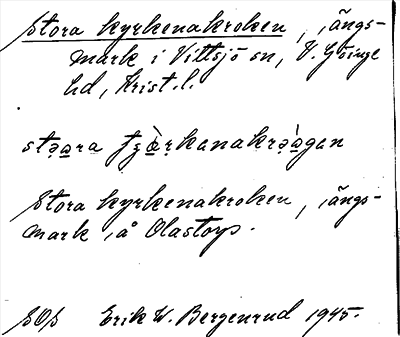 Stora kyrkenakroken, ängs-
mark i Vittsjö sn, V. Göinge
hd, Krist. l.
stǫa̲ra tʒà̲rkanakrǫà̲gan
Stora kyrkenakroken, ängs-
mark å Olastorp.
SOS Erik W. Bergenrud 1945.